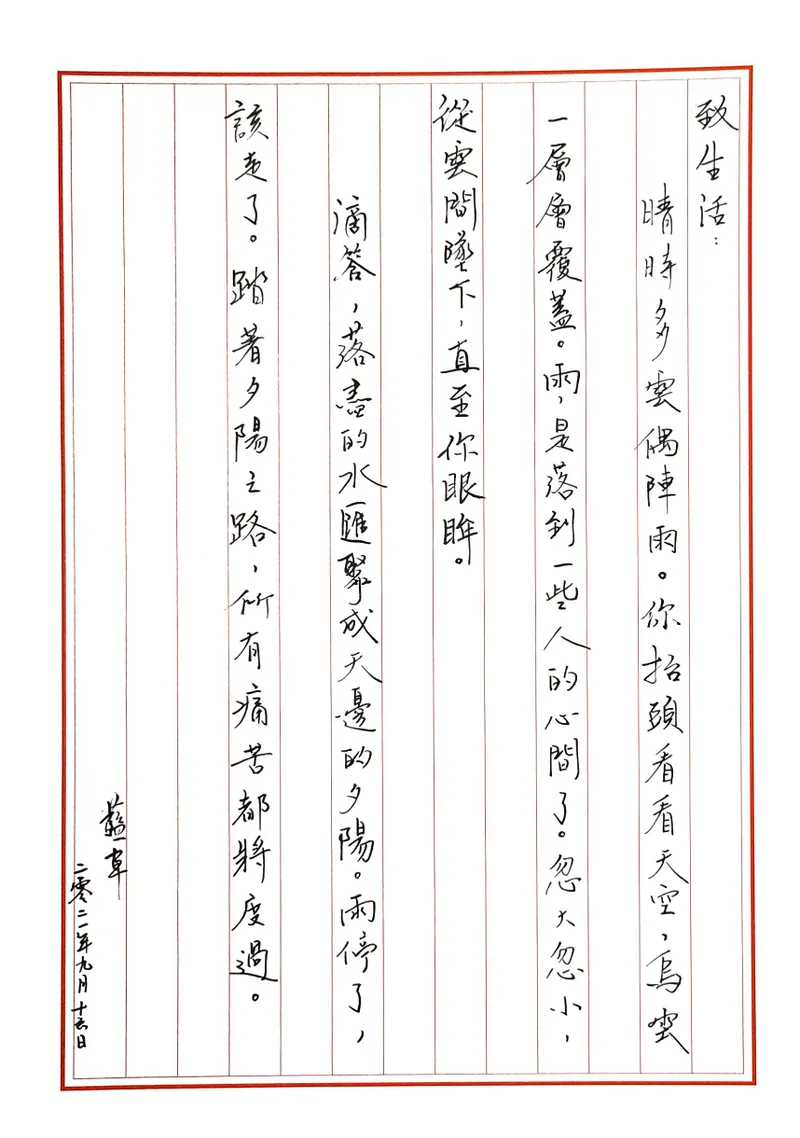 致生活：
晴時多雲偶陣雨。你抬頭看看天空，烏雲
一層層覆蓋。雨，是落到一些人的心間了。忽大忽小，
從雲間墜下，直至你眼眸。
滴答，落盡的水匯聚成天邊的夕陽。雨停了，
該走了。踏著夕陽之路，所有痛苦都將度過。
藍一草
二零二一年九月十六日